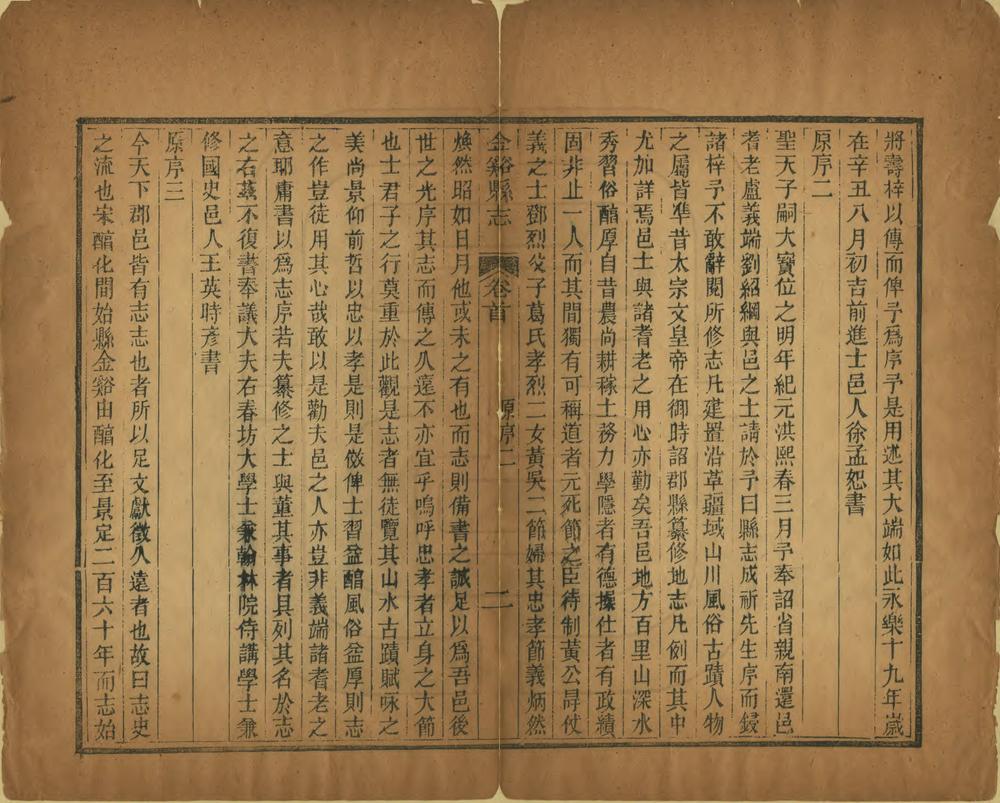 將壽梓以傳而俾予爲序予是用述其大端如此永樂十九年歲
在辛丑八月初吉前進士邑人徐孟恕書
原序二
聖天子嗣大寶位之明年紀元洪熙春三月予奉詔省親南還邑
耆老盧義端劉紹綱與邑之士請於予曰縣志成祈先生序而鋟
諸梓予不敢辭閱所修志凡建置沿革疆域山川風俗古蹟人物
之屬皆準昔太宗文皇帝在御時詔郡縣纂修地志凡例而其中
尤加詳焉邑士與諸耆老之用心亦勤矣吾邑地方百里山深水
秀習俗醕厚自昔農尚耕稼士務力學隱者有德操仕者有政績
固非止一人而其間獨有可稱道者元死節之臣待制黃公冔仗
義之士鄧烈父子葛氏孝烈二女黃吳二節婦其忠孝節義炳然
金谿縣志 卷首 原序二 二
煥然昭如日月他或未之有也而志則備書之誠足以爲吾邑後
世之光序其志而傳之久遠不亦宜乎嗚呼忠孝者立身之大節
也士君子之行莫重於此觀是志者無徒覽其山水古蹟賦咏之
美尚景仰前哲以忠以孝是則是傚俾士習益醕風俗益厚則志
之作豈徒用其心哉敢以是勸夫邑之人亦豈非義端諸耆老之
意耶庸書以爲志序若夫纂修之士與董其事者具列其名於志
之右茲不復書奉議大夫右春坊大學士兼翰林院侍講學士兼
修國史邑人王英時彥書
原序三
今天下郡邑皆有志志也者所以足文獻徵久遠者也故曰志史
之流也宋醕化間始縣金谿由醕化至景定二百六十年而志始